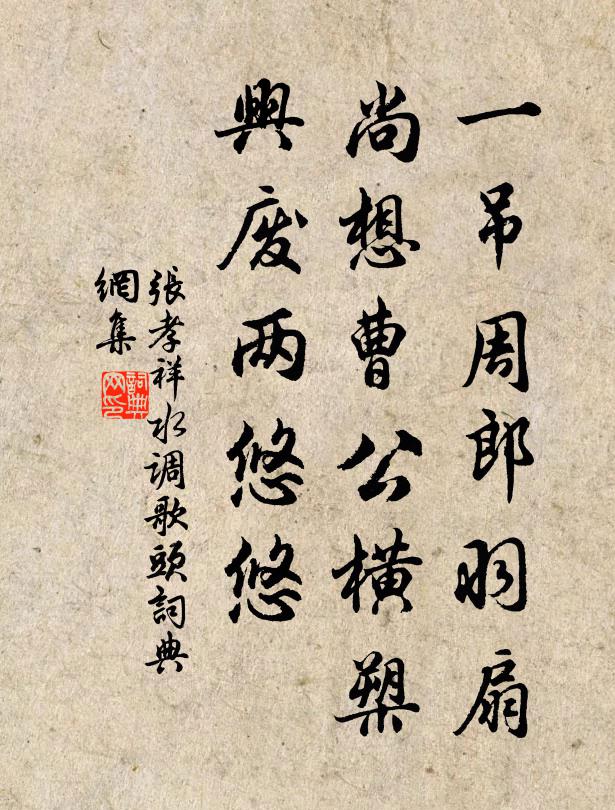 一吊周郎羽扇
尚想曹公横槊
興废两悠悠
張孝祥水调歌頭詞典
網集
詞典
网印